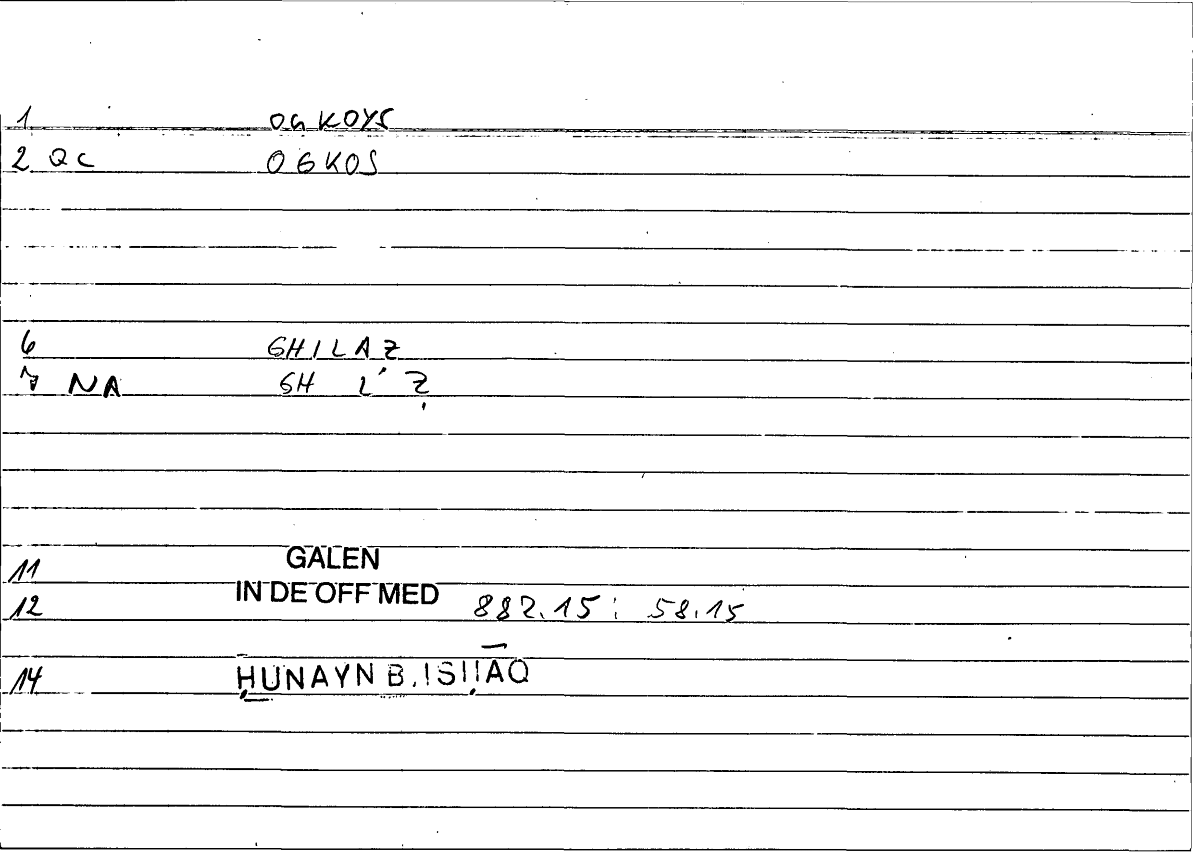 1 OGKOYS
2 QC OGKOS
6 GHILAZ
7 NA GH L' Ẓ
11 GALEN
12 IN DE OFF MED 882.15 ; 58.15
14 ḤUNAYN B. ISḤĀQ